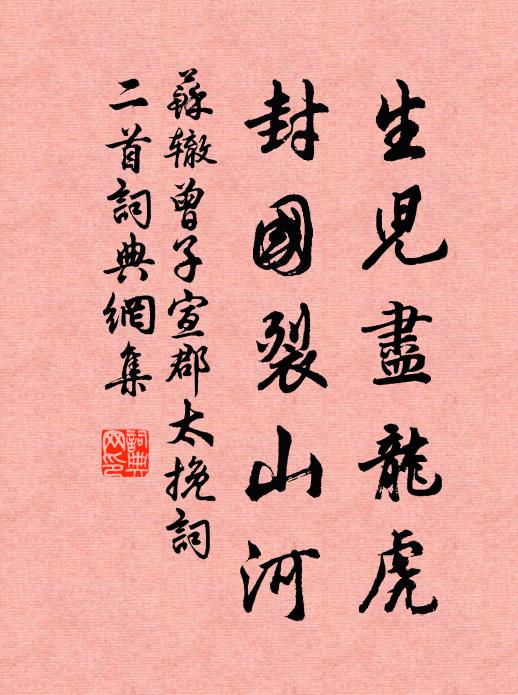 生児盡龍虎
封國裂山河
蘇辙曾子宣郡太挽詞
二首詞典網集
詞典
网印